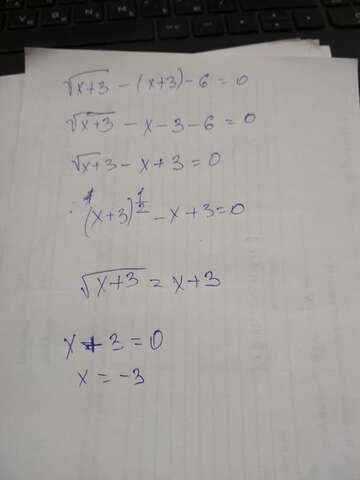 √x+3 - (x+3) - 6 = 0
√x+3 - x - 3 - 6 = 0
√x+3 - x + 3 = 0
(x+3)^1/2 - x + 3 = 0
√x+3 = x+3
x + 3 = 0
x = -3